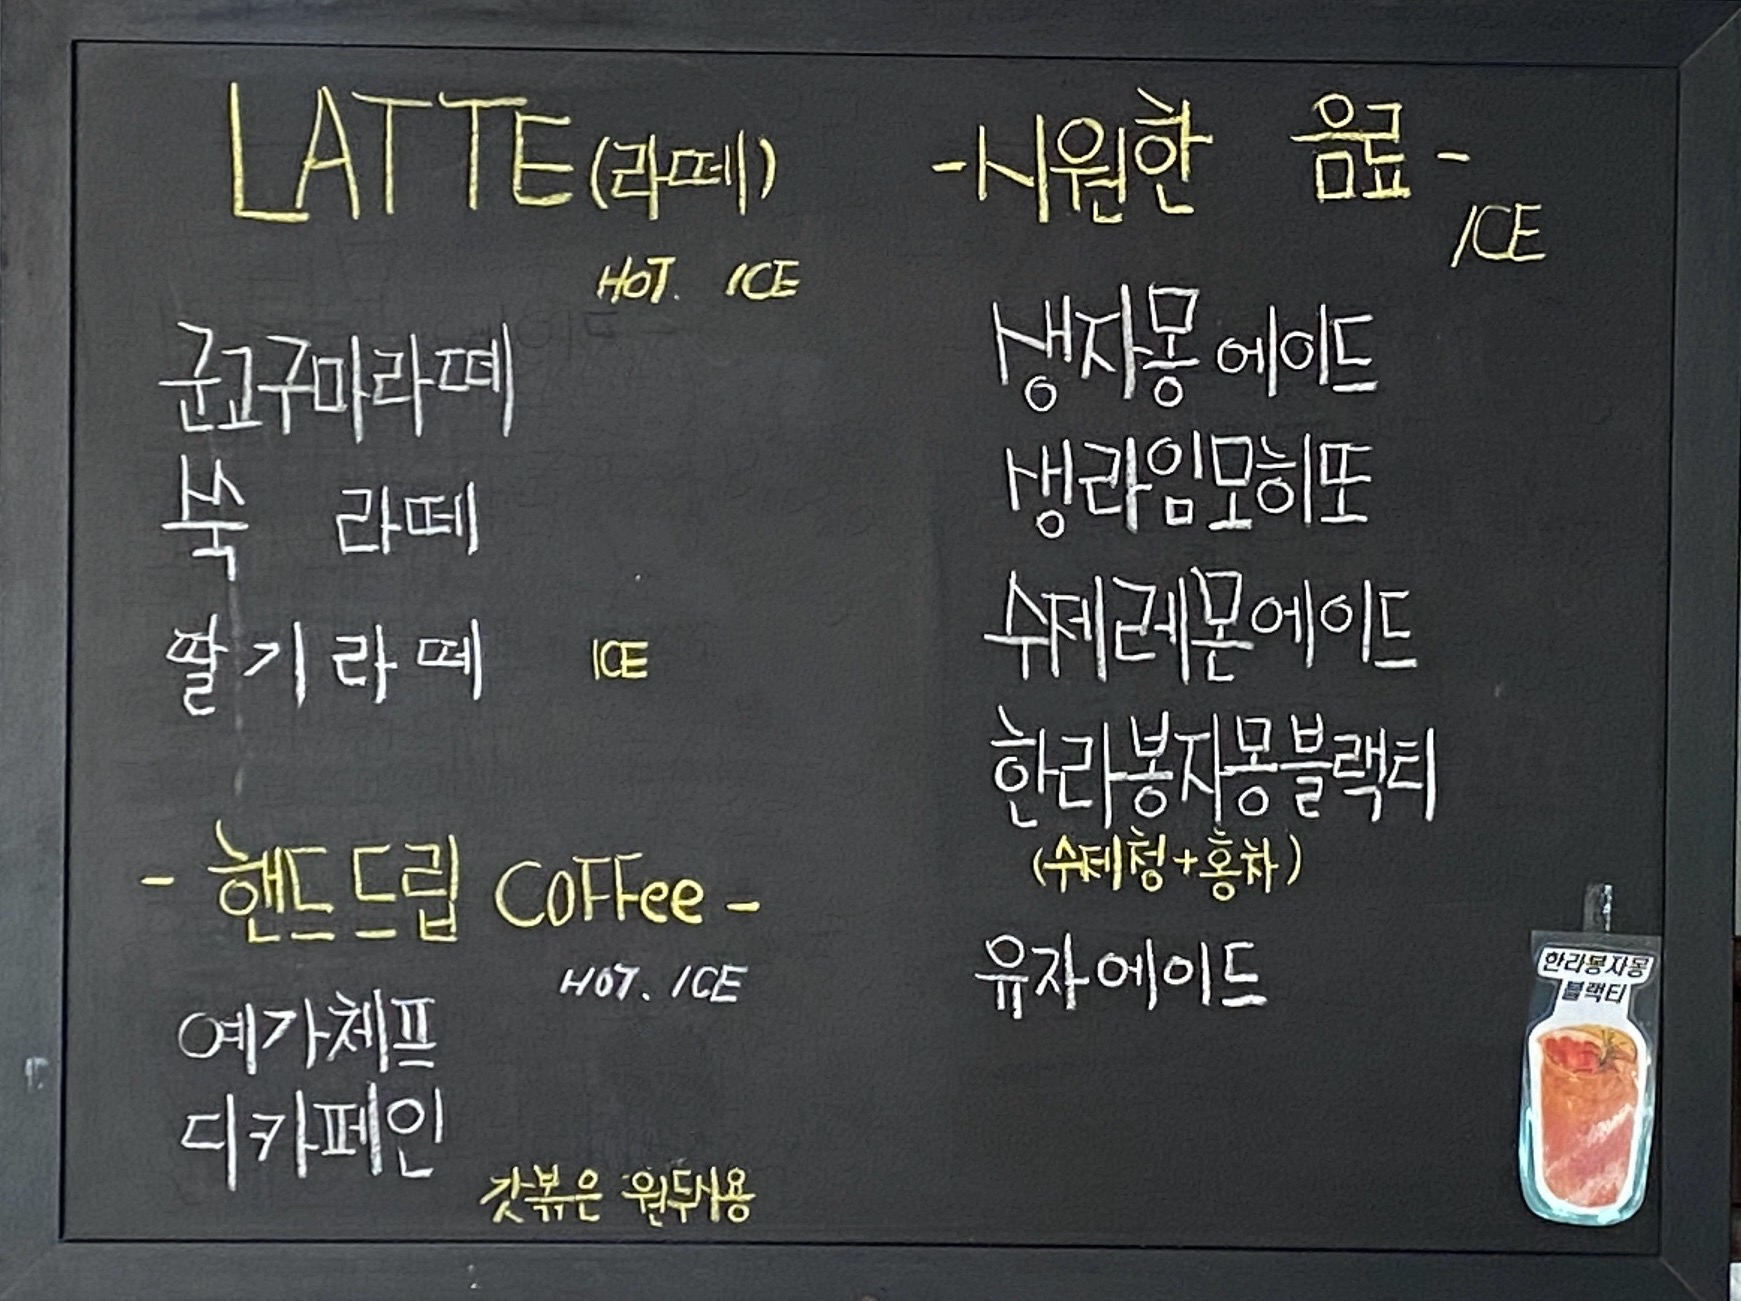 LATTE(라떼)
HOT. ICE
군고구마라떼
쑥 라떼
딸기라떼 ICE
- 핸드드립 COFFee -
HOT. ICE
예가체프
디카페인
갓볶은 원두사용
-시원한 음료-
ICE
생자몽에이드
생라임모히또
수제레몬에이드
한라봉자몽블랙티
(수제청+홍차)
유자에이드
한라봉자몽
블랙티